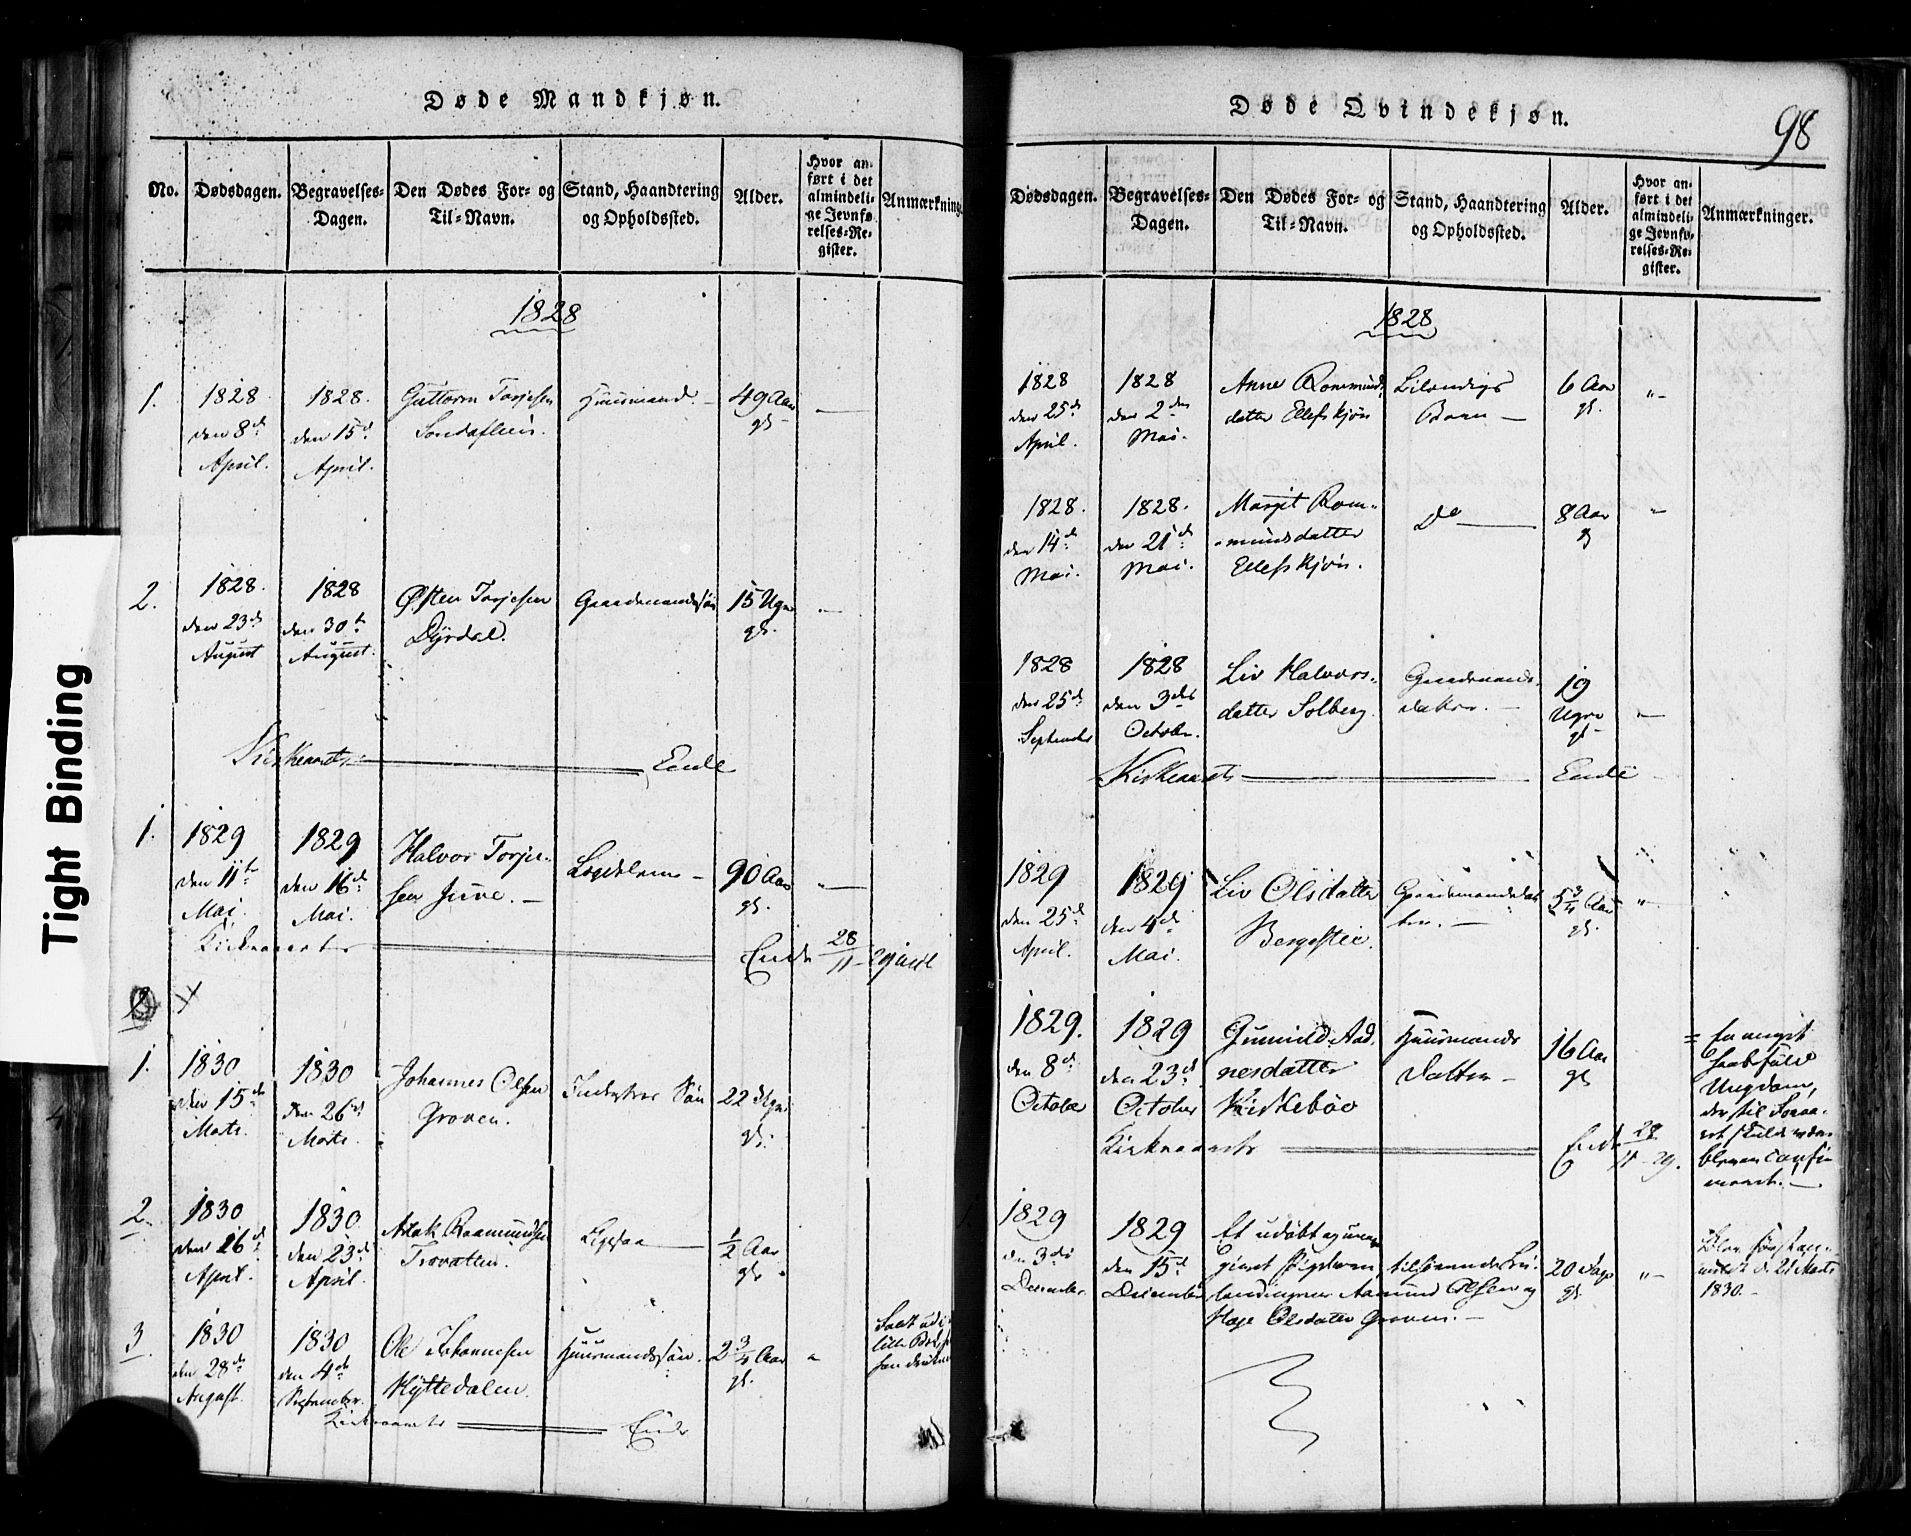 Tight Binding
Døde Mandkjøn.
No.
Dødsdagen.
Begravelses-
Dagen.
Den Dødes For- og
Til-Navn.
Stand, Haandtering
og Opholdssted.
Alder.
Hvor an-
ført i det
almindeli-
ge Jevnfø-
relses-Re-
gister.
Anmærkninge
1828
1.
1828
den 8de
April.
1828.
den 15d
April.
Guttorm Torjesen
Huusmand. —
49 Aar
gl.
2.
1828.
den 23de
August
1828
den 30te
August.
Østen Torjesen
Dyrdal.
Gaardmandssøn
15 Uger
gl.
Kirkeaarets Ende
1.
1829
den 11te
Mai.
1829
den 16de
Mai.
Halvor Torje-
sen Juve. —
90 Aar
gl.
Kirkeaarets Ende 28/11
1.
1830
den 15de
Marts.
1830
den 26de
Marts.
Johannes Olsen
Groven.
Inderstes Søn
22
gl.
2.
1830
den 16de
April.
1830.
den 23de
April.
Aslak
½ Aar
gl.
3.
1830
den 28de
August.
1830
den 4de
September.
Ole Johannesen
Hyttedalen.
Huusmandssøn.
2 ¾ Aar
gl.
Kirkeaarets Ende
Døde Qvindekjøn.
98
Dødsdagen.
Begravelses-
Dagen.
Den Dødes For- og
Til-Navn.
Stand, Haandtering
og Opholdssted.
Alder.
Hvor an-
ført i det
almindeli-
ge Jevnfø-
relses-Re-
gister.
Anmærkninger.
1828
1828
den 25de
April.
1828
den 2den
Mai.
Anne Rommunds
datter Ellefskjøn
Barn —
6 Aar
gl.
1828.
den 14de
Mai.
1828.
den 21de
Mai.
Margit Rom-
mundsdatter
Ellefskjøn.
Do
8 Aar
gl
1828
den 25de
September
1828
den 3die
October.
Liv Halvors-
datter Solberg.
Gaardmands-
datter. —
19
Uger
gl
Kirkeaarets Ende
1829
den 25de
April.
1829
den 4de
Mai.
Liv Olsdatter
Bergestie.
Gaardmandsdat
ter. —
5 ¾ Aar
gl.
1829.
den 8de
October
1829
den 23de
October
Gunnild Aad-
nesdatter
Kirkebøe
Huusmands
Datter —
16 Aar
gl
en meget
haabfuld
Ungdom,
der til Foraa-
ret skulde
bleven confir-
meret. —
Kirkeaarets Ende 28/11 29.
1829
den 3die
December.
1829
den 15de
December
Et udøbt og
Pigebarn,
Aamund Olsen og
Hæge Olsdatter Groven. —
20 Dage
gl.
1830. —